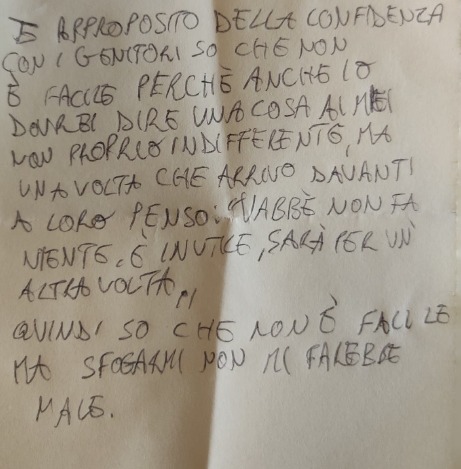 E APPROPOSITO DELLA CONFIDENZA
CON I GENITORI SO CHE NON
È FACILE PERCHÈ ANCHE IO
DOVREI DIRE UNA COSA AI MIEI
NON PROPRIO INDIFFERENTE, MA
UNA VOLTA CHE ARRIVO DAVANTI
A LORO PENSO: "VABBÈ NON FA
NIENTE, È INUTILE, SARÀ PER UN'
ALTRA VOLTA,"
QUINDI SO CHE NON È FACILE
MA SFOGARMI NON MI FAREBBE
MALE.